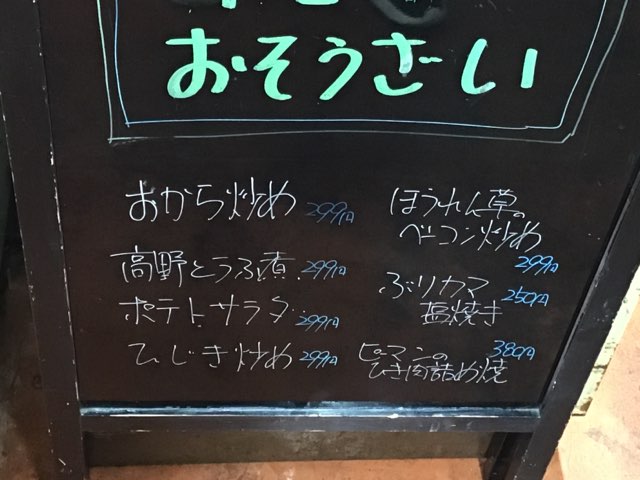 おそうざい
おから炒め 299円
高野とうふ煮 299円
ポテトサラダ 299円
ひじき炒め 299円
ほうれん草の
ベーコン炒め
299円
ぶりカマ 250円
塩焼き
ピーマンの 380円
ひき肉詰め焼